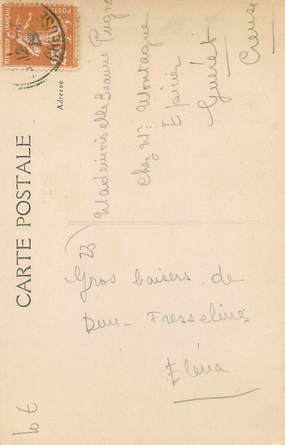 CARTE POSTALE
Adresse
Mademoiselle Jeanne
Chez Mr Montagne
Epicier
Guéret
Creuse
23
Gros baisers de
Dun-Fresselines
Eléna
10 €